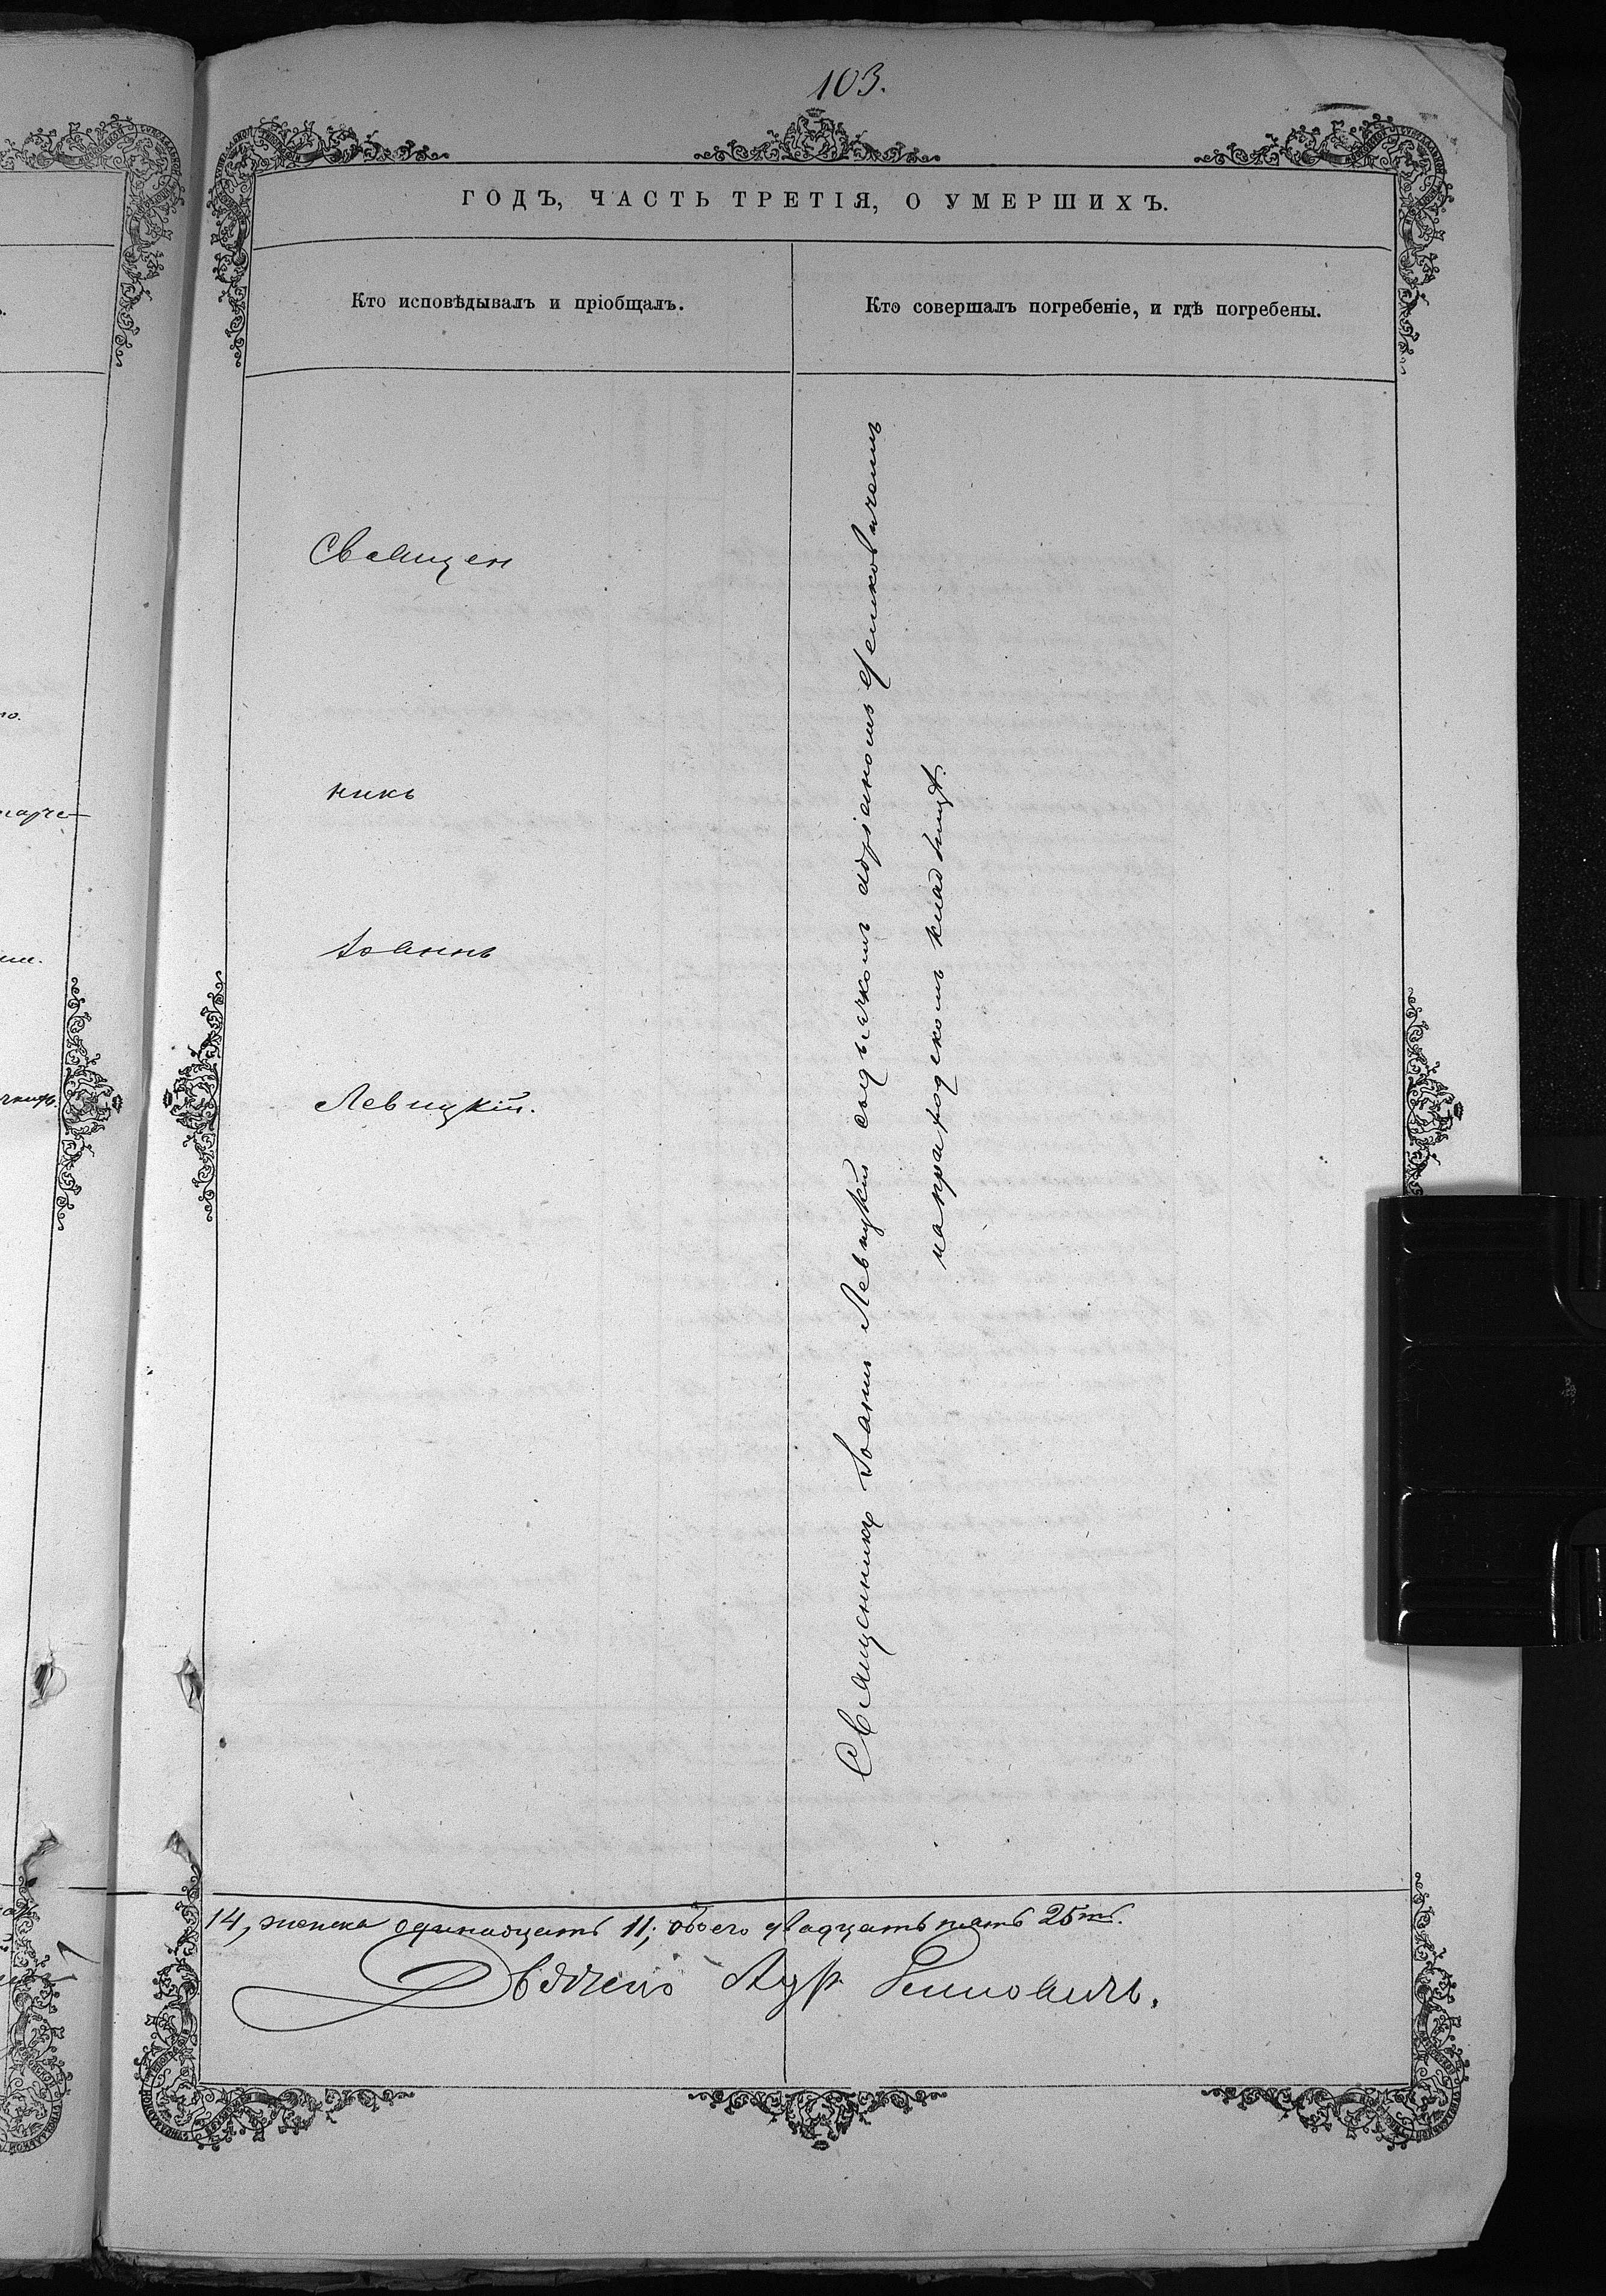 103.
ГОДЪ, ЧАСТЬ ТРЕТІЯ, О УМЕРШИХЪ.
Кто исповѣдывалъ и пріобщалъ.
Кто совершалъ погребеніе, и гдѣ погребены.
Священ
никъ
Іоаннъ
Левицкій.
Священникъ Іоаннъ Левицкій съ
на приходскомъ кладбищѣ.
14, женска одинадцать 11; обоего двадцать пять 25ть.